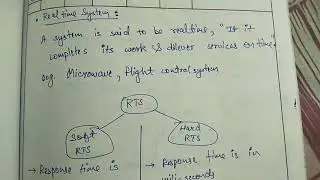 • Real time System :
A system is said to be realtime, "If it
completes its work & deliver services on time"
eg. Microwave, flight control system
RTS
Soft
RTS
Hard
RTS
→ Response time is
→ Response time is in
mili seconds